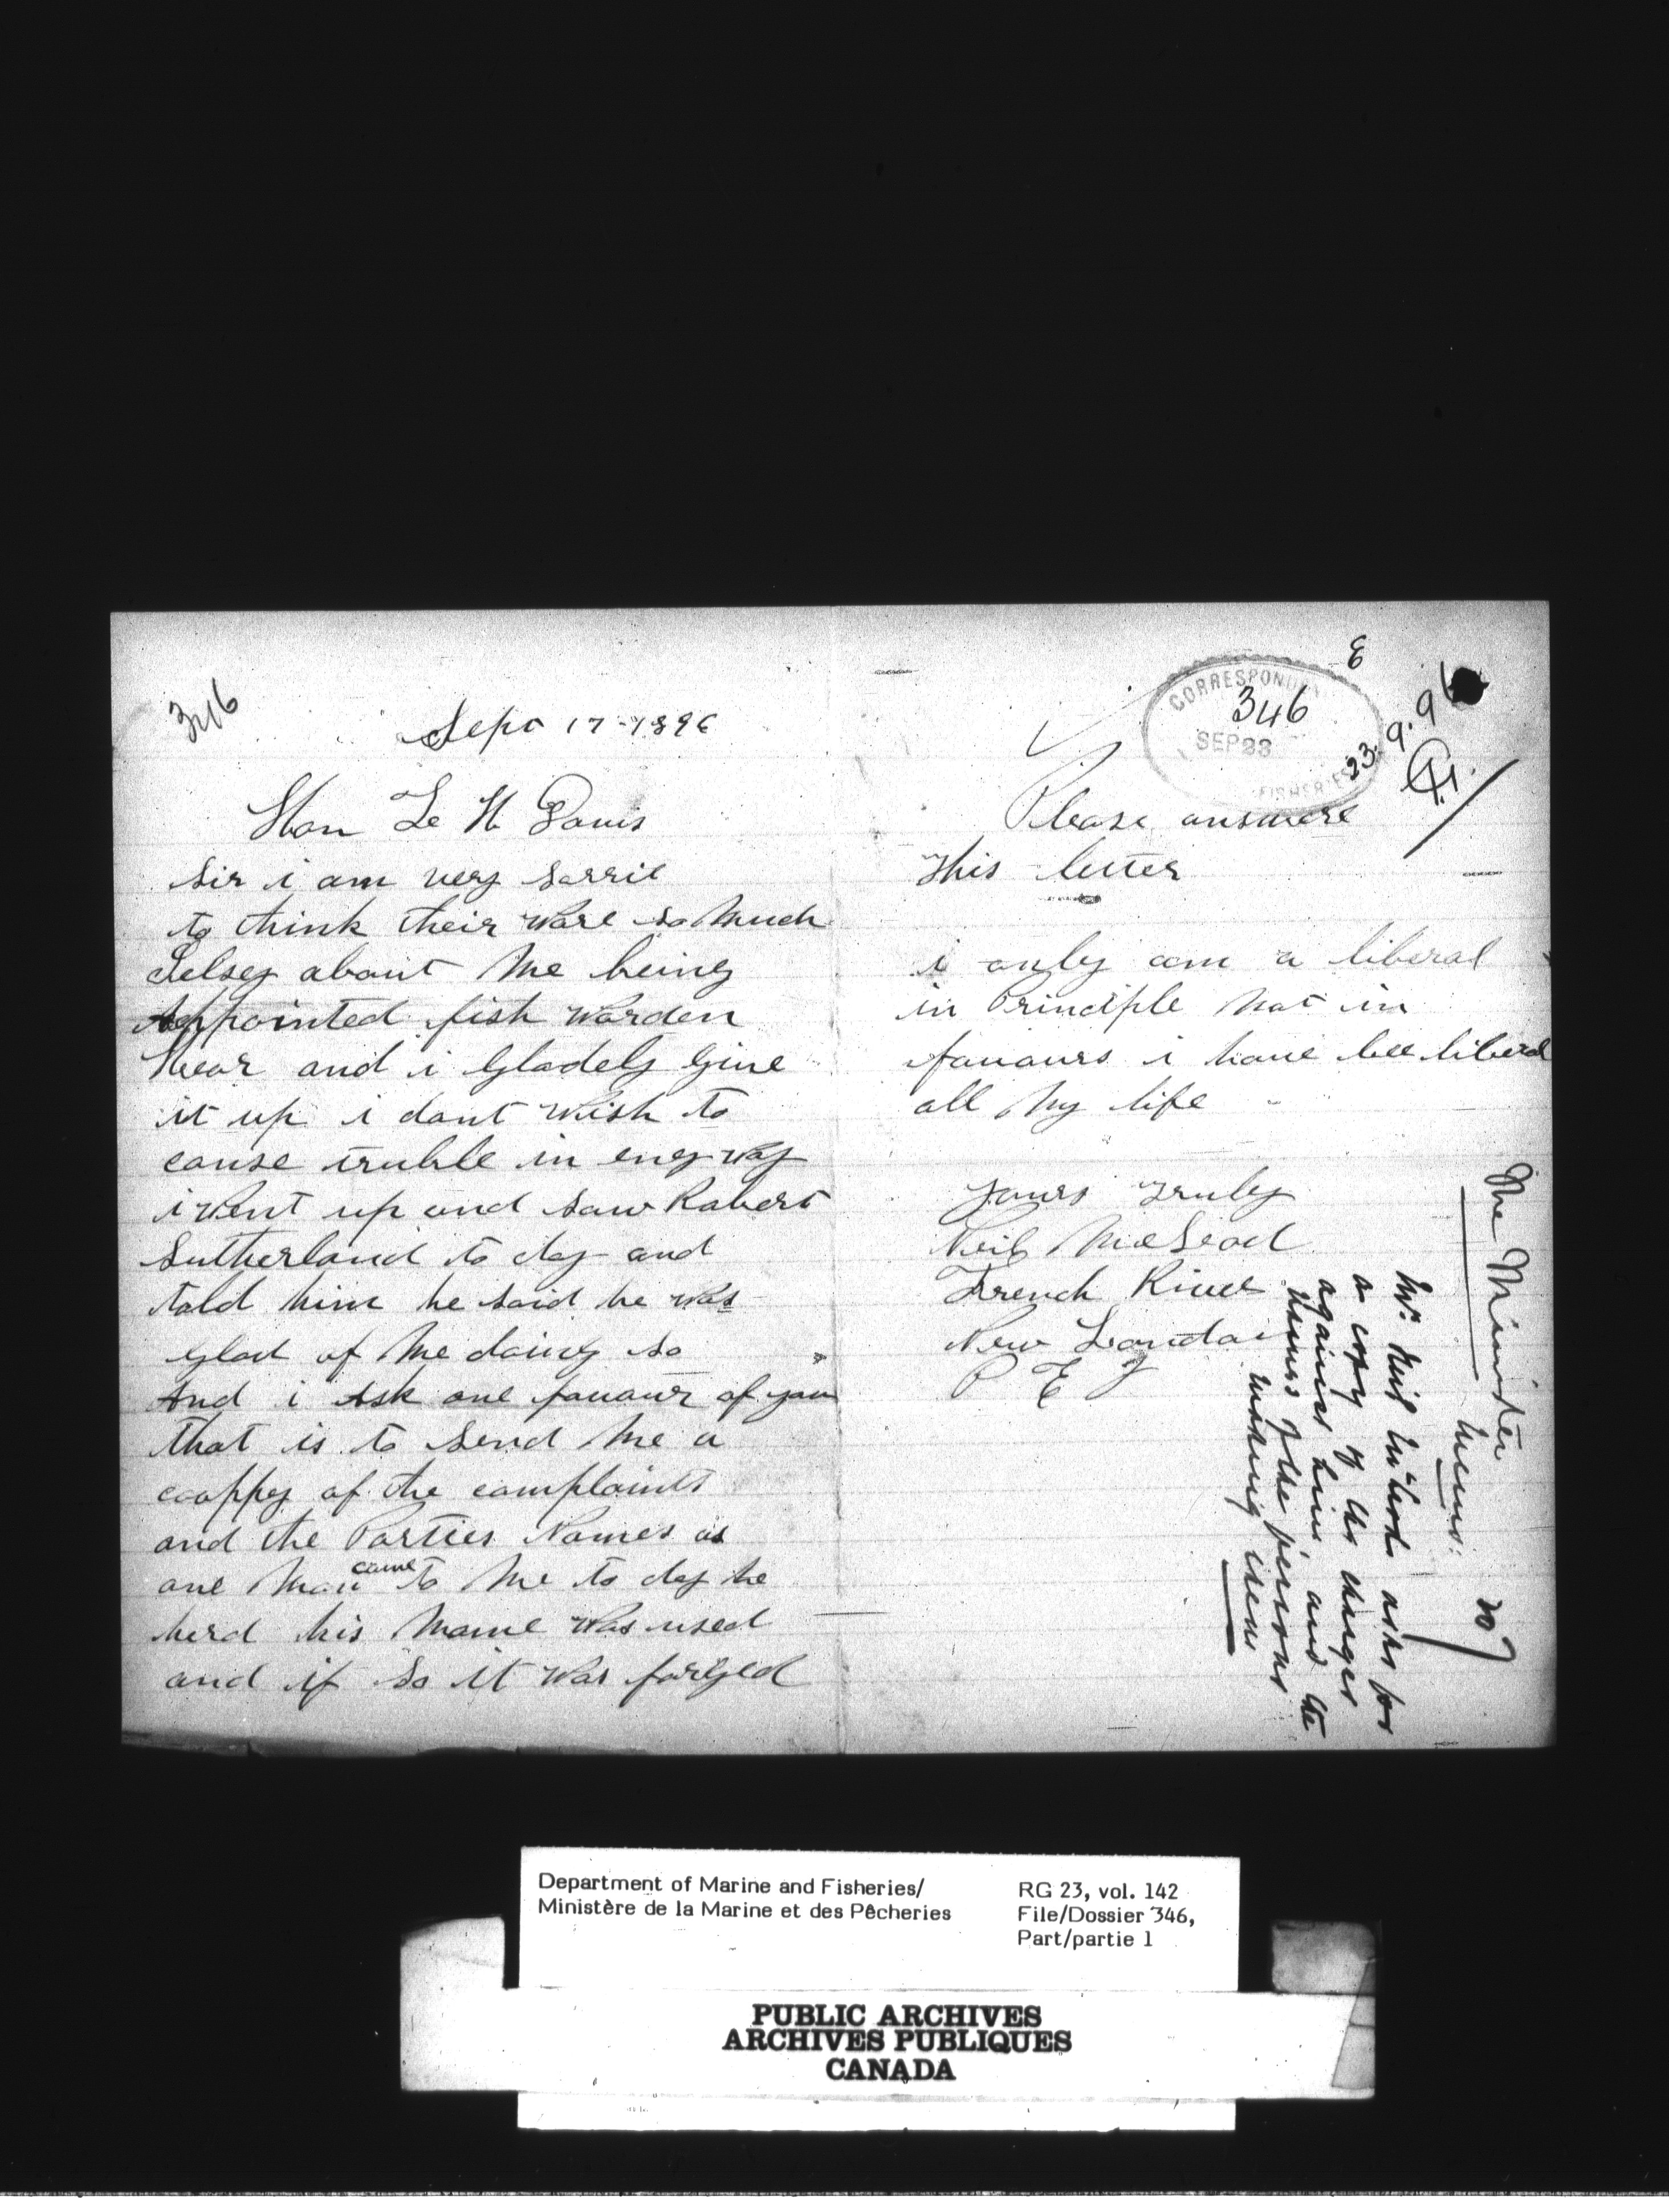 346
Sept 17-1896
Hon Le H Davis
Sir i am very sorrie
to think their ware so much
Jelsey about Me being
Appointed fish Warden
Hear and i Gladely Give
it up i dont Wish to
cause truble in eney way
i Went up and saw Robert
Sutherland to day and
told him he said he was
glad of Me doing so
And i Ask one favour of you
that is to Send Me a
cooppey of the complaints
and the Parties Names as
one Man came to Me to day he
herd his Name Was used
and if so it was forged
E
CORRESPOND
346
SEP 23
FISHERIES
23.9.96
Please answere
This letter
i onley am a liberal
in Principle Not in
favours i have bee liberal
all My life
yours Truley
Neil McLeod
French River
New London
P E J
The Minister
Memo:
Mr. Neil McLeod asks for
a copy of the charges
against him and the
names of the persons
making them
Department of Marine and Fisheries/
Ministère de la Marine et des Pêcheries
RG 23, vol. 142
File/Dossier 346,
Part/partie 1
PUBLIC ARCHIVES
ARCHIVES PUBLIQUES
CANADA